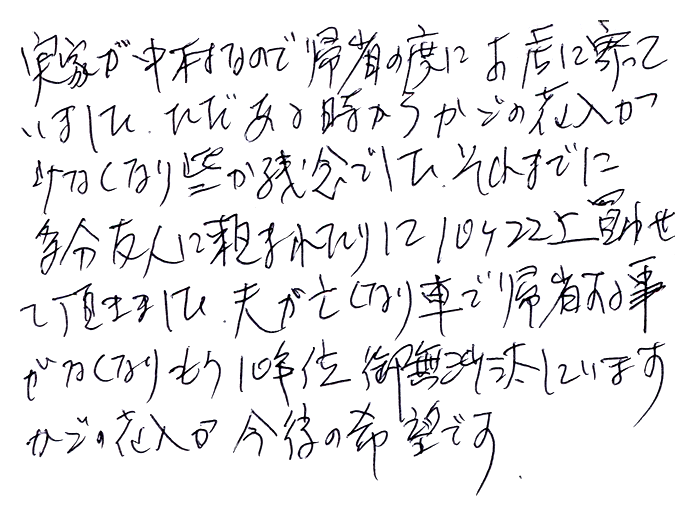 実家が中村なので帰省の度にお店に寄って
いました。ただある時からかごの花入が
少なくなり些か残念でした。それまでに
多分友人に頼まれたりして10ケ以上買わせ
て頂きました。夫が亡くなり車で帰省する事
がなくなりもう10年位御無沙汰しています
かごの花入が今後の希望です.